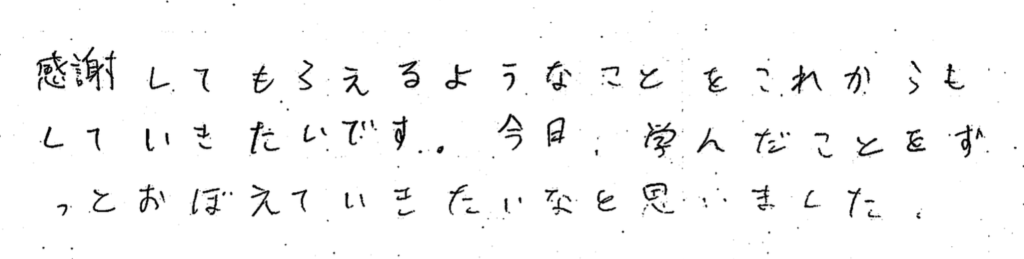 感謝してもらえるようなことをこれからも
していきたいです。今日、学んだことをず
っとおぼえていきたいなと思いました。